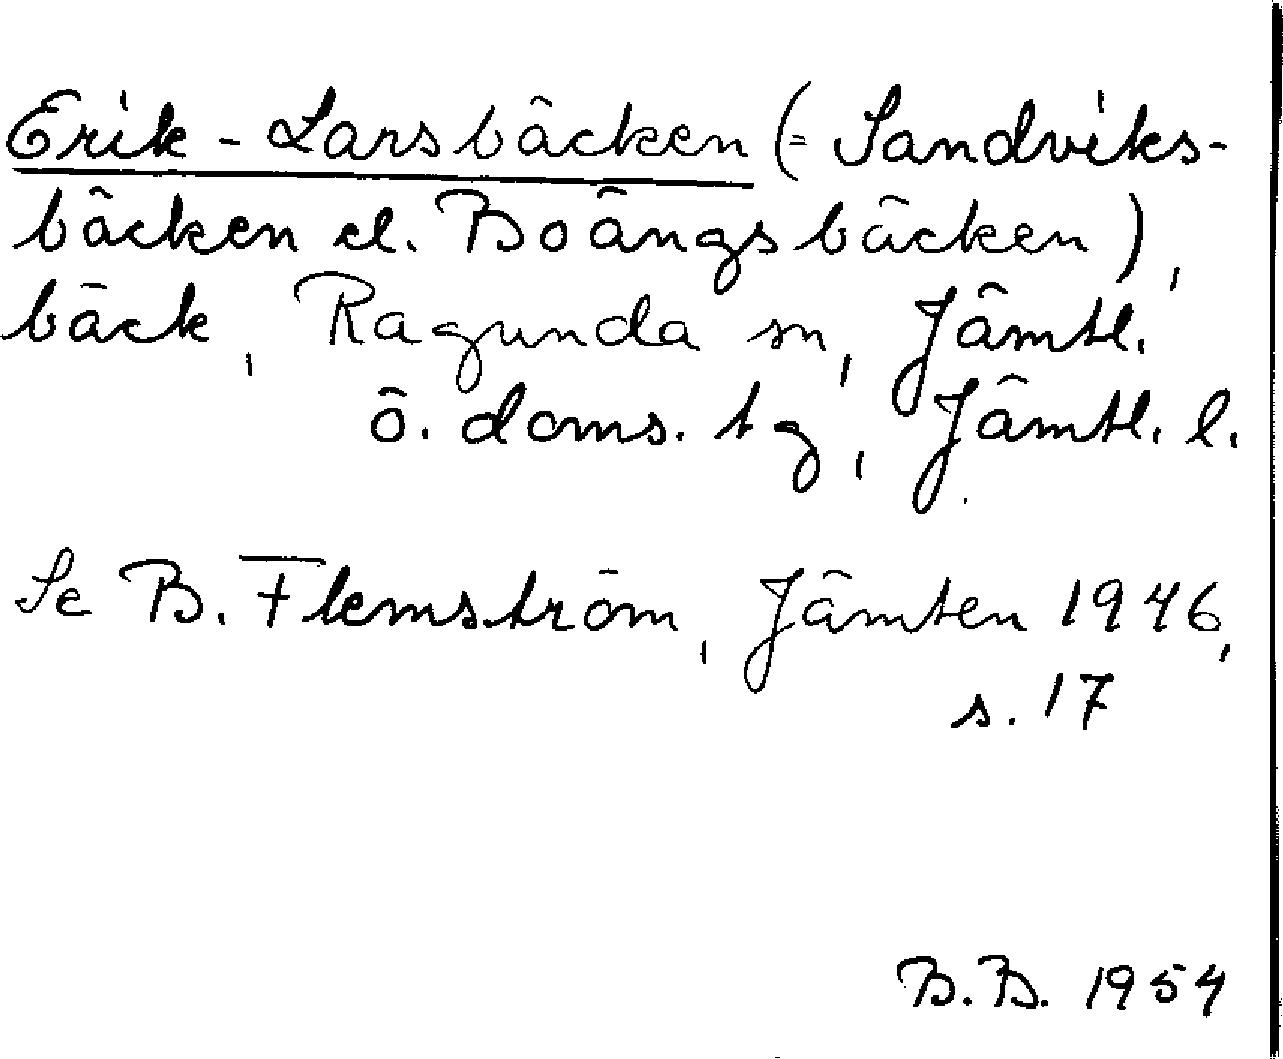 Erik-Larsbäcken (= Sandviks-
bäcken el. Boängsbäcken),
bäck, Ragunda sn, Jämtl.
ö. doms. tg, Jämtl. l.
Se B. Flemström, Jämten 1946,
s. 17
B.B. 1954